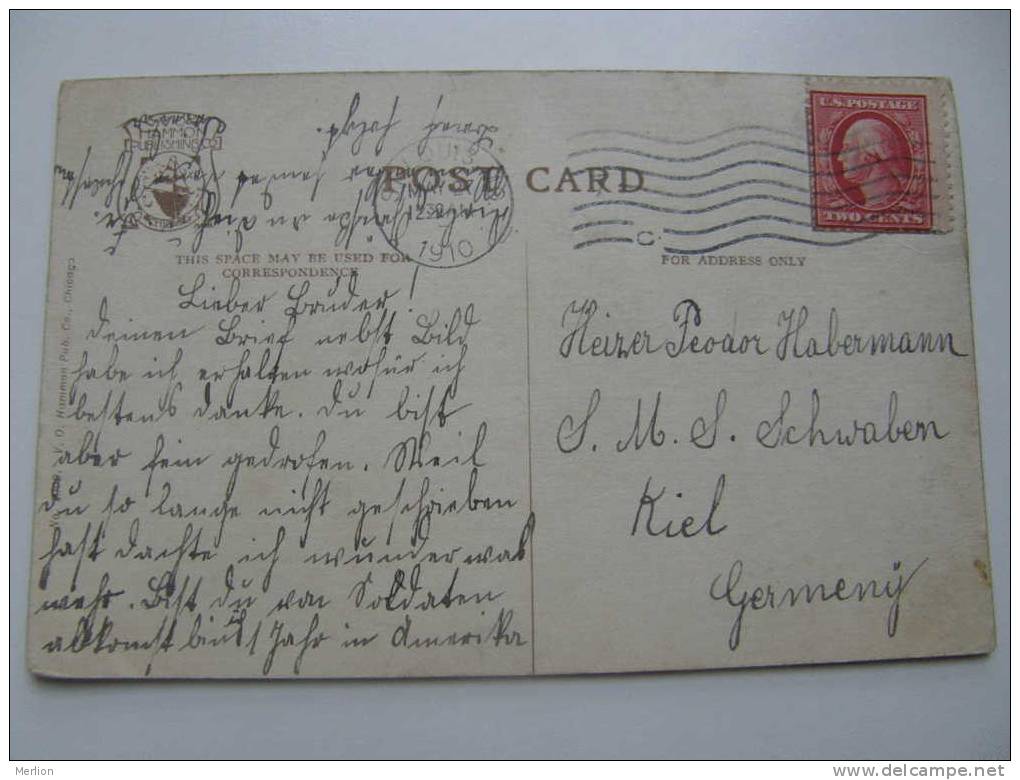 HAMMON
PUBLISHING CO
POST CARD
MAY
12 30 AM
1910
C.
U.S. POSTAGE
TWO CENTS
THIS SPACE MAY BE USED FOR
CORRESPONDENCE
FOR ADDRESS ONLY
V. O. Hammon Pub. Co., Chicago
Lieber Bruder!
deinen Brief nebst Bild
habe ich erhalten wofür ich
bestens danke. Du bist
aber fein gedrofen. Weil
du so lange nicht geschrieben
hast dachte ich wunder was
mehr. Bist du von Soldaten
abkomst Jahr in Amerika
Heizer Feodor Habermann
S. M. S. Schwaben
Kiel
Germeny
Merlion
http://www.delcampe.net